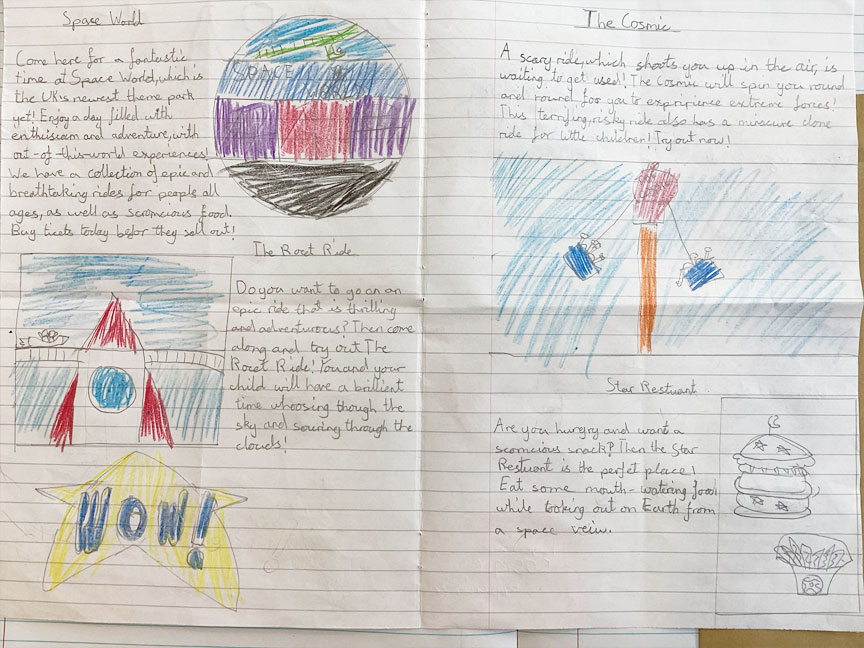 Space World
Come here for a fantastic
time at Space World, which is
the UK's newest theme park
yet! Enjoy a day filled with
enthisicam and adventure, with
out-of-this-world experiences!
We have a collection of epic and
breathtaking rides for people all
ages, as well as scromcious food.
Buy ticets today befor they sell out!
SPACE
The Rocet Ride
Do you want to go on an
epic ride that is thrilling
and adventurous? Then come
along and try out The
Rocet Ride! You and your
child will have a brillient
time whoosing though the
sky and souring through the
clouds!
WOW!
The Cosmic
A scary ride, which shoots you up in the air, is
waiting to get used! The Cosmic will spin you round
and round for you to expriprience extreme forces!
This terrifying, risky ride also has a minscure clone
ride for little children! Try out now!
Star Restuant
Are you hungry and want a
scomcious snack? Then the Star
Restuant is the perfet place!
Eat some mouth-watering food
while looking out on Earth from
a space veiw.